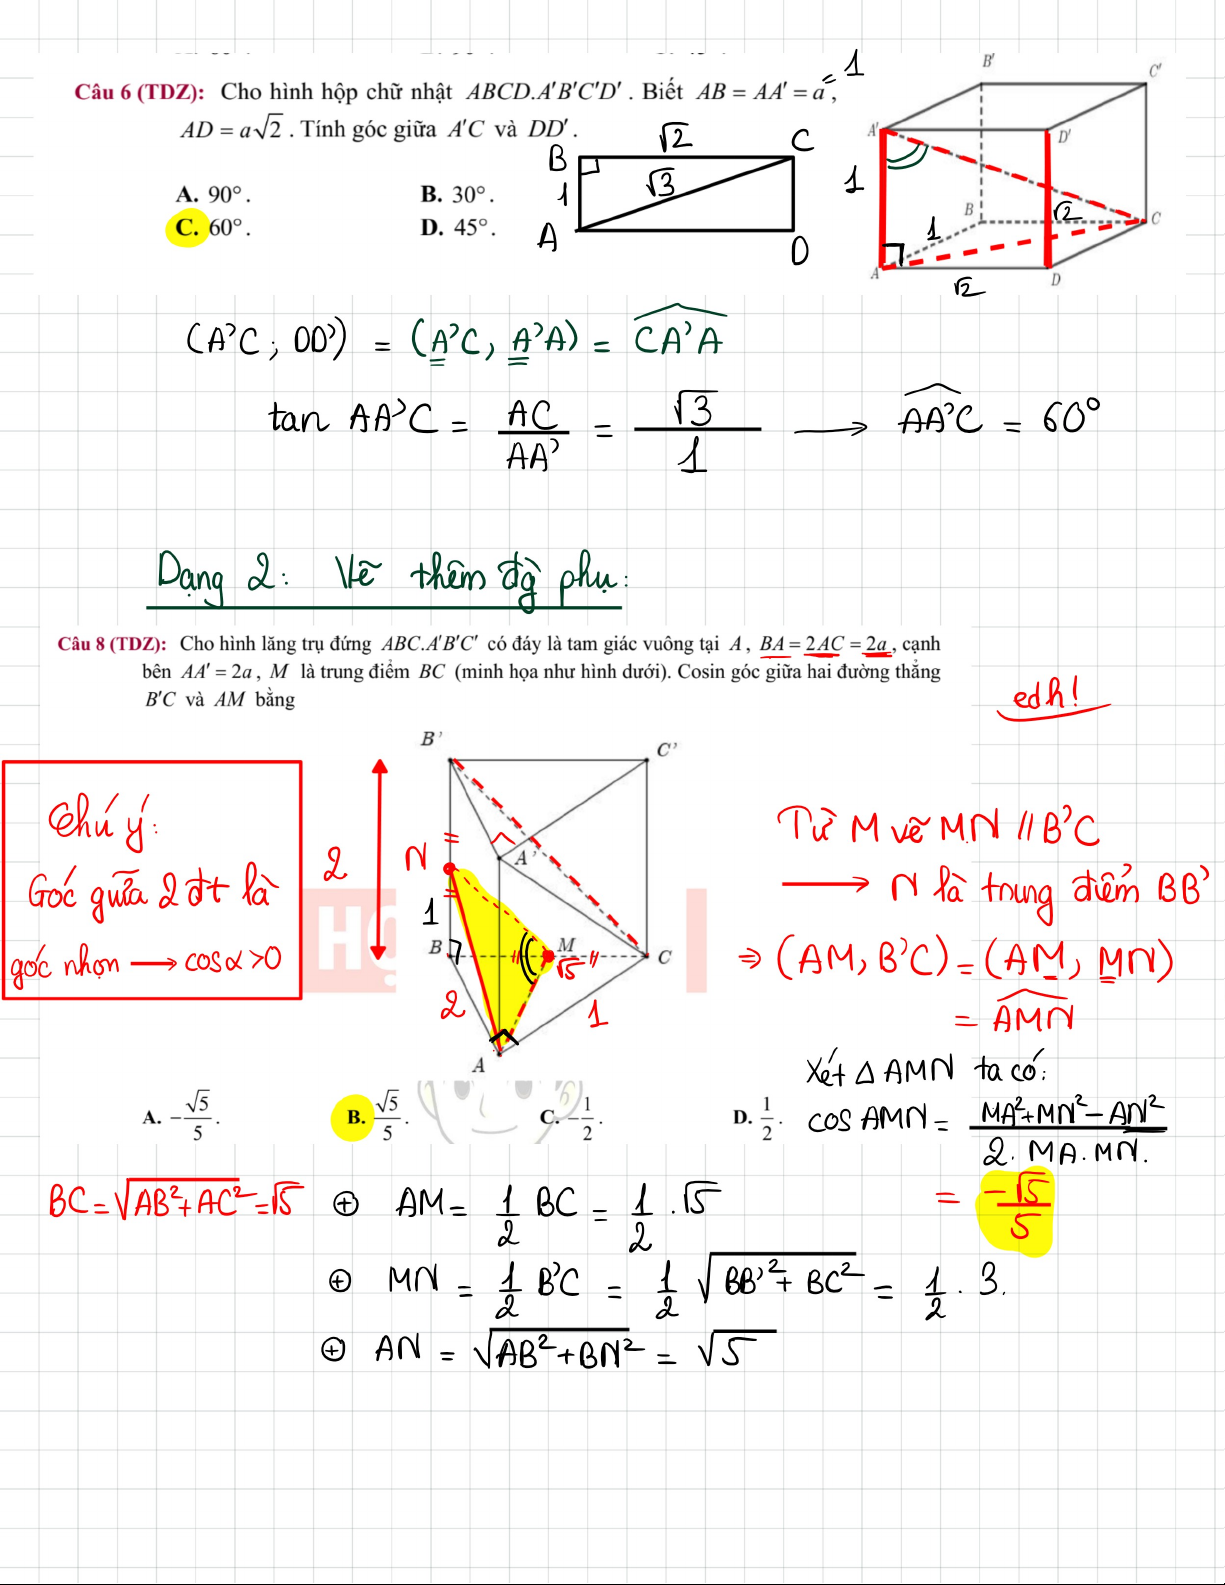 Câu 6 (TDZ): Cho hình hộp chữ nhật ABCD.A'B'C'D' . Biết AB = AA' = a , = 1
AD = a√2 . Tính góc giữa A'C và DD' .
A. 90° . B. 30° .
C. 60° . D. 45° .
B √2 C
1 √3
A D
B' C'
A' D'
1
B √2 C
1
A √2 D
(A'C ; DD') = (A'C, A'A) = CA'A
tan AA'C = AC/AA' = √3/1 → AA'C = 60°
Dạng 2: Vẽ thêm đg phụ:
Câu 8 (TDZ): Cho hình lăng trụ đứng ABC.A'B'C' có đáy là tam giác vuông tại A , BA = 2AC = 2a , cạnh
bên AA' = 2a , M là trung điểm BC (minh họa như hình dưới). Cosin góc giữa hai đường thẳng
B'C và AM bằng
edh!
Chú ý:
Góc giữa 2 đt là
góc nhọn → cosα >0
B' C'
2 N A'
1
B M C
√5
2 1
A
Từ M vẽ MN // B'C
→ N là trung điểm BB'
⇒ (AM, B'C) = (AM, MN)
= AMN
Xét Δ AMN ta có:
cos AMN = (MA²+MN²-AN²)/(2. MA.MN.)
= -√5/5
A. -√5/5 . B. √5/5 . C. -1/2 . D. 1/2 .
BC = √(AB²+AC²) = √5 ⊕ AM = 1/2 BC = 1/2 .√5
⊕ MN = 1/2 B'C = 1/2 √(BB'²+ BC²) = 1/2 . 3.
⊕ AN = √(AB²+BN²) = √5